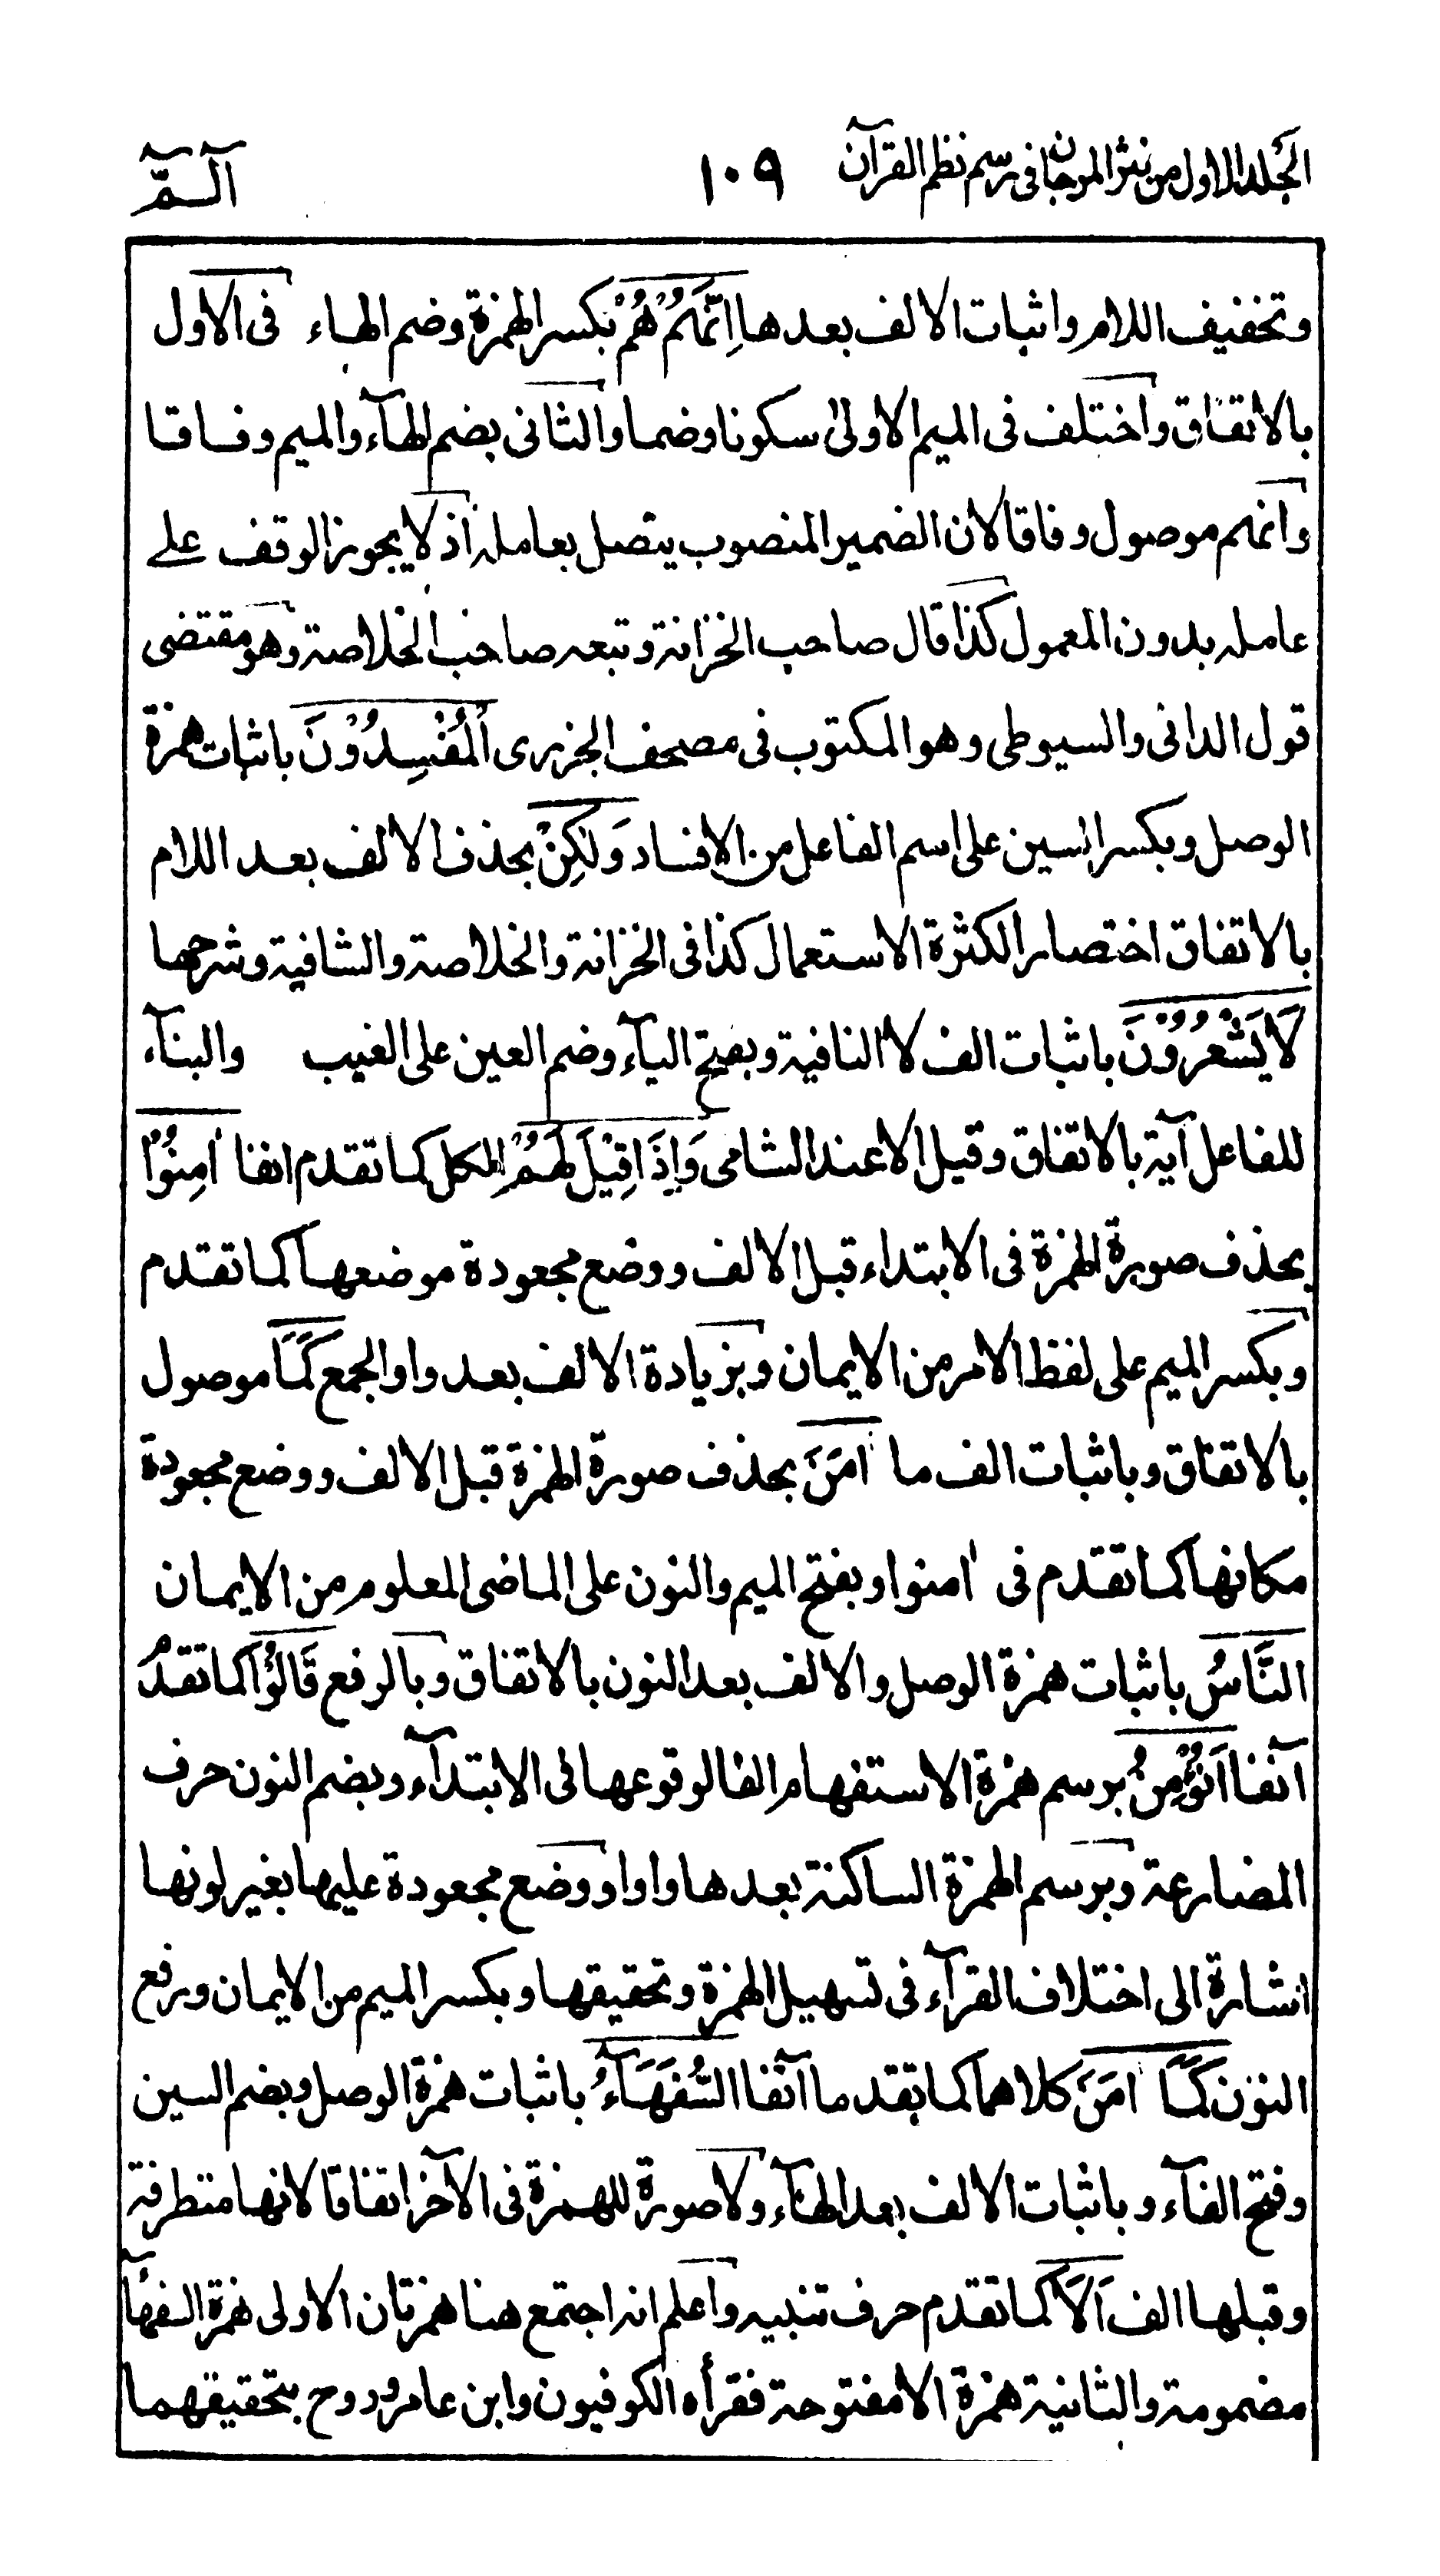 الجلد الاول من نثر المرجان فى رسم نظم القرآن ١٠٩ آلٓمّٓ
وتخفيف اللام واثبات الالف بعدها اِنَّهُمْ هُمْ بكسر الهمزة وضم الهاء فى الاول
بالاتفاق واختلف فى الميم الاولىٰ سكونا وضما والثانى بضم الهآء والميم وفاقا
وانهم موصول وفاقا لان الضمير المنصوب يتصل بعامله اذ لا يجوز الوقف علے
عامله بدون المعمول كذا قال صاحب الخزانة وتبعه صاحب الخلاصة وهو مقتضى
قول الدانى والسيوطى وهو المكتوب فى مصحف الجزرى اَلْمُفْسِدُوْنَ باثبات همزة
الوصل وبكسر السين على اسم الفاعل من الافساد وَلٰكِنْ بحذف الالف بعد اللام
بالاتفاق اختصارا لكثرة الاستعمال كذا فى الخزانة والخلاصة والشافية وشرحها
لَا يَشْعُرُوْنَ باثبات الف لا النافية وبفتح اليآء وضم العين على الغيب والبنآء
للفاعل آية بالاتفاق وقيل الا عند الشامى وَاِذَا قِيْلَ لَهُمْ الكل كما تقدم انفا اٰمِنُوْا
بحذف صورة الهمزة فى الابتداء قبل الالف ووضع مجعودة موضعها كما تقدم
وبكسر الميم على لفظ الامر من الايمان وبزيادة الالف بعد واو الجمع كَمَآ موصول
بالاتفاق وباثبات الف ما اٰمَنَ بحذف صورة الهمزة قبل الالف ووضع مجعودة
مكانها كما تقدم فى اٰمنوا وبفتح الميم والنون على الماضى المعلوم من الايمان
النَّاسُ باثبات همزة الوصل والالف بعد النون بالاتفاق وبالرفع قَالُوْٓا كما تقدم
آنفا اَنُؤْمِنُ برسم همزة الاستفهام الفا لوقوعها فى الابتدآء وبضم النون حرف
المضارعة وبرسم الهمزة الساكنة بعدها واوا ووضع مجعودة عليها بغير لونها
اشارة الى اختلاف القرآء فى تسهيل الهمزة وتحقيقها وبكسر الميم من الايمان ورفع
النون كَمَآ اٰمَنَ كلاهما كما تقدما آنفا السُّفَهَآءُ باثبات همزة الوصل وبضم السين
وفتح الفآء وباثبات الالف بعد الهآء ولا صورة للهمزة فى الآخر اتفاقا لانها متطرفة
وقبلها الف اَلَآ كما تقدم حرف تنبيه واعلم انه اجتمع هنا همزتان الاولى همزة السفهآء
مضمومة والثانية همزة الا مفتوحة فقرأه الكوفيون وابن عامر وروح بتحقيقهما